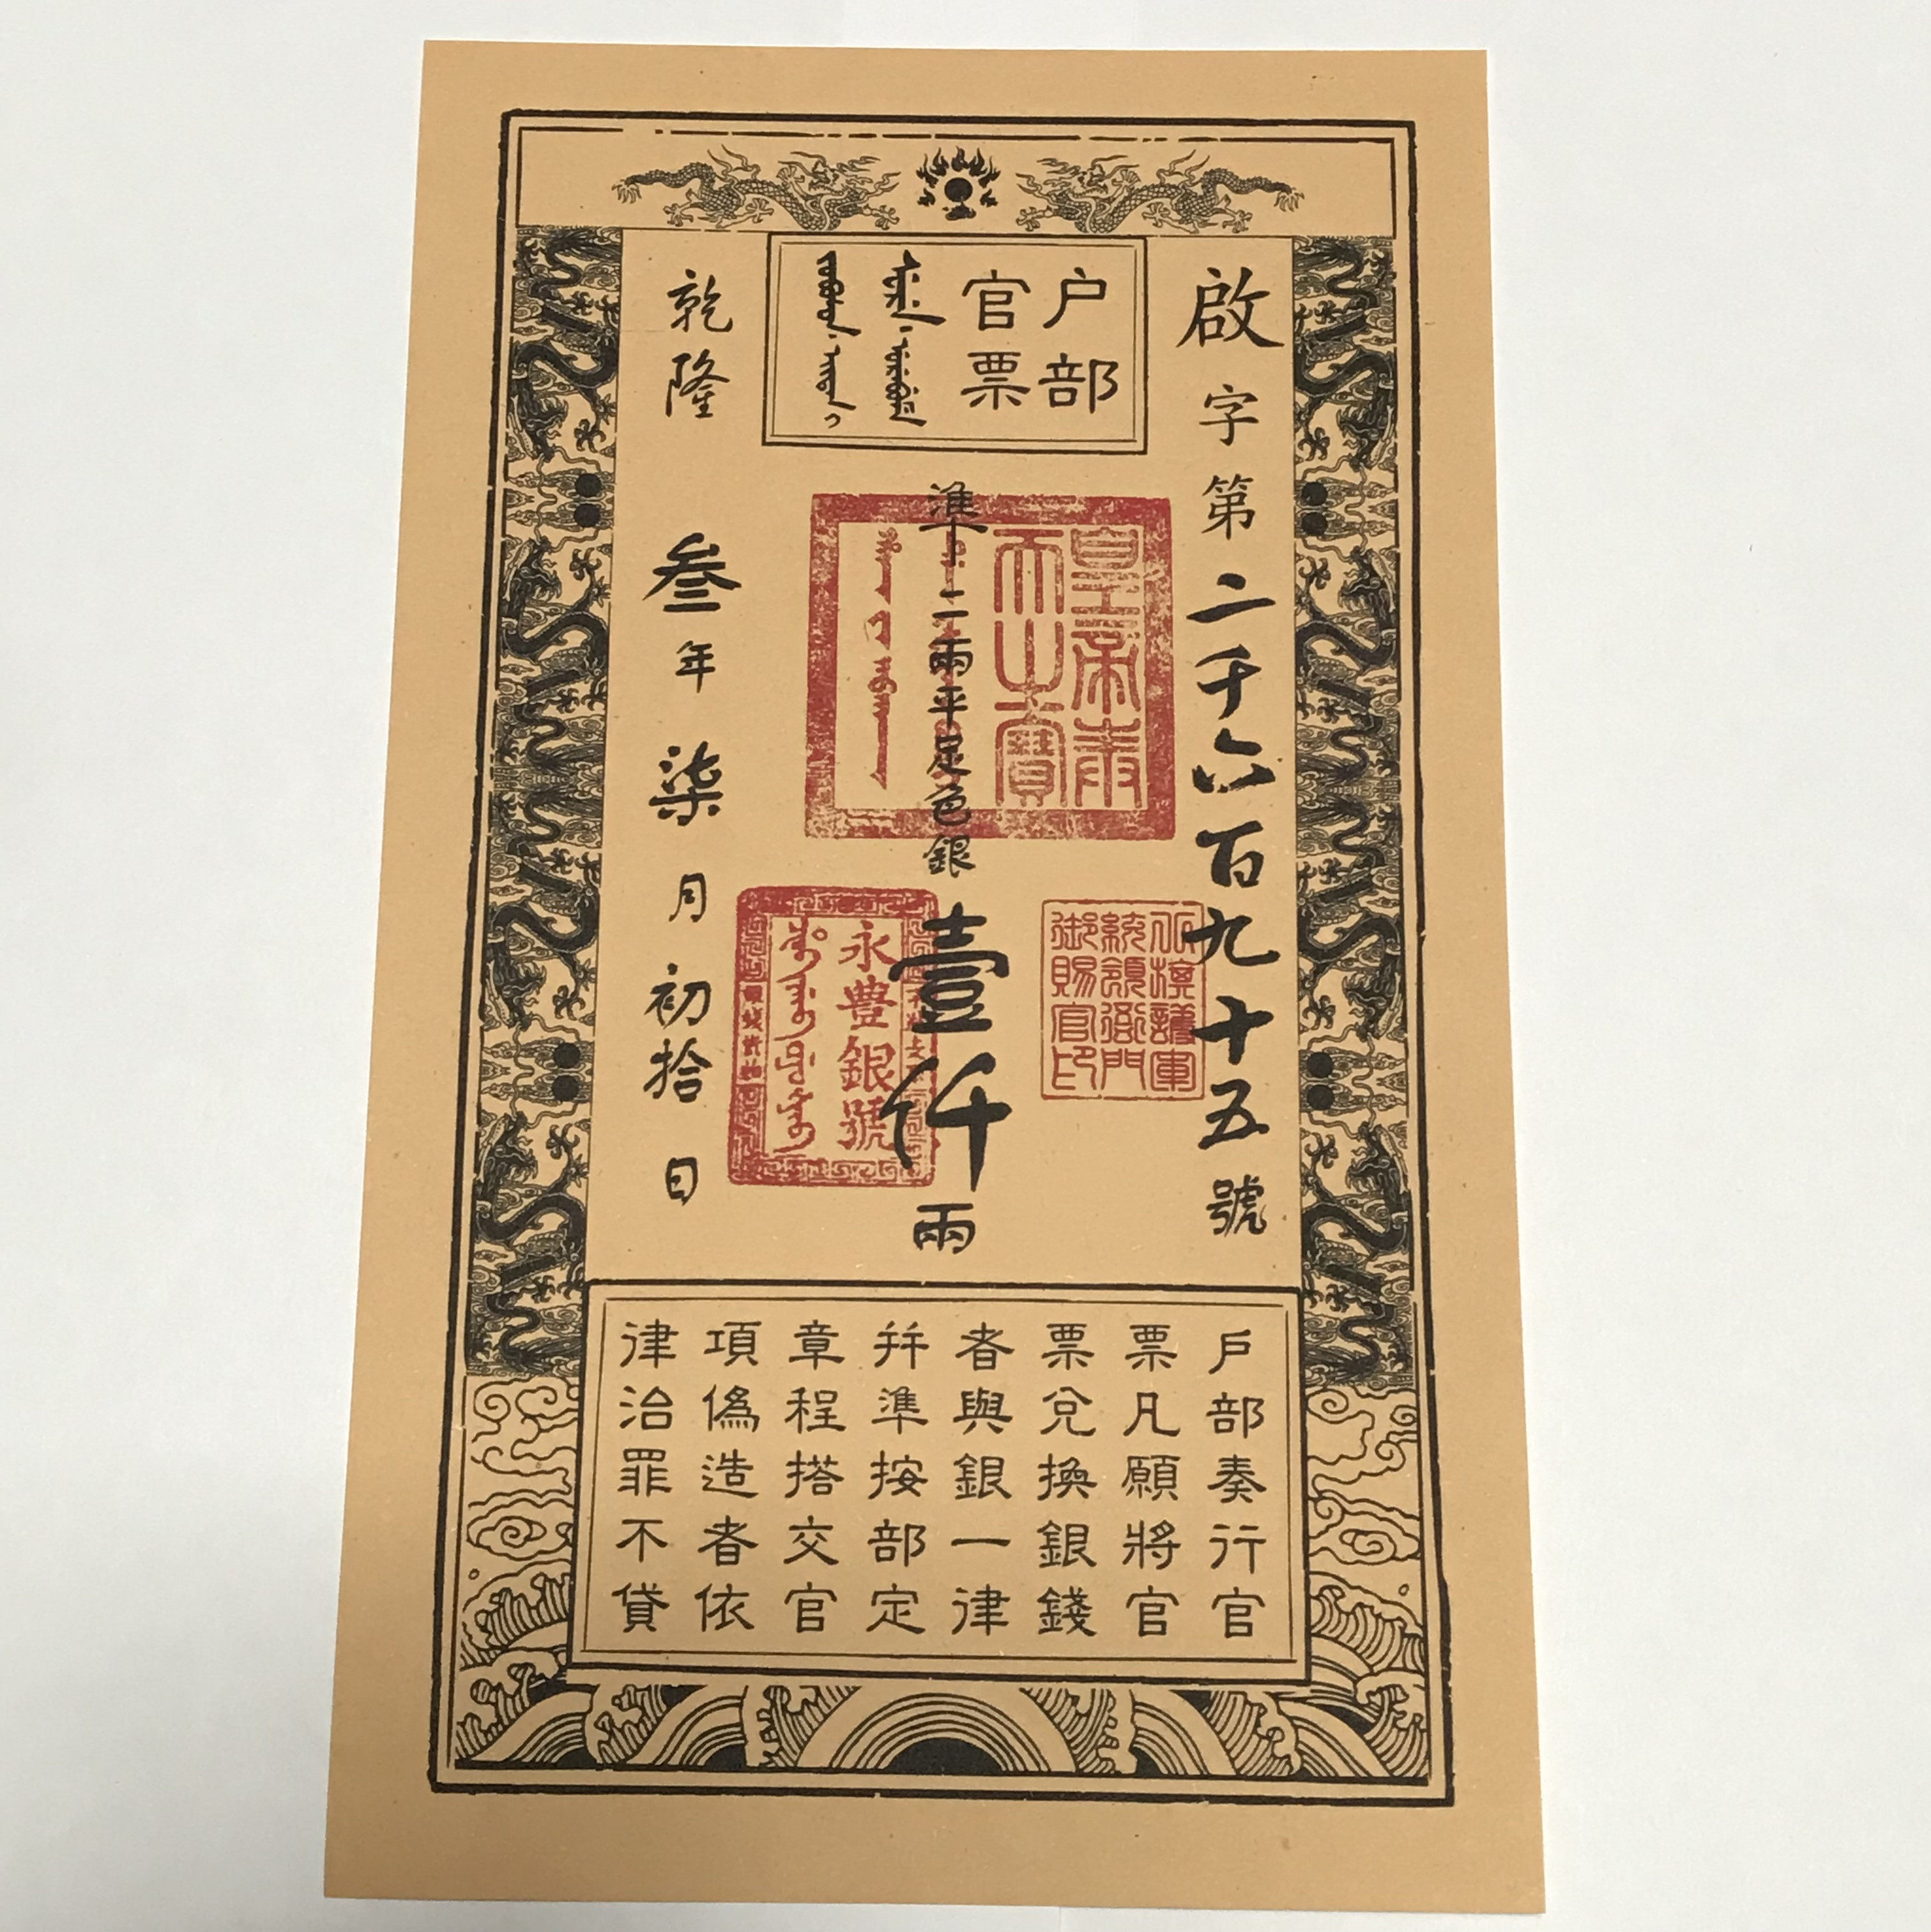 户部
官票
啟字第二千六百九十五號
準二兩平足色銀壹仟兩
乾隆叁年柒月初拾日
皇帝奉
天之寶
永豐銀號
統領衙門
御賜官印
户部奏行官
票凡願將官
票兌換銀錢
者與銀一律
并準按部定
章程搭交官
項偽造者依
律治罪不貸